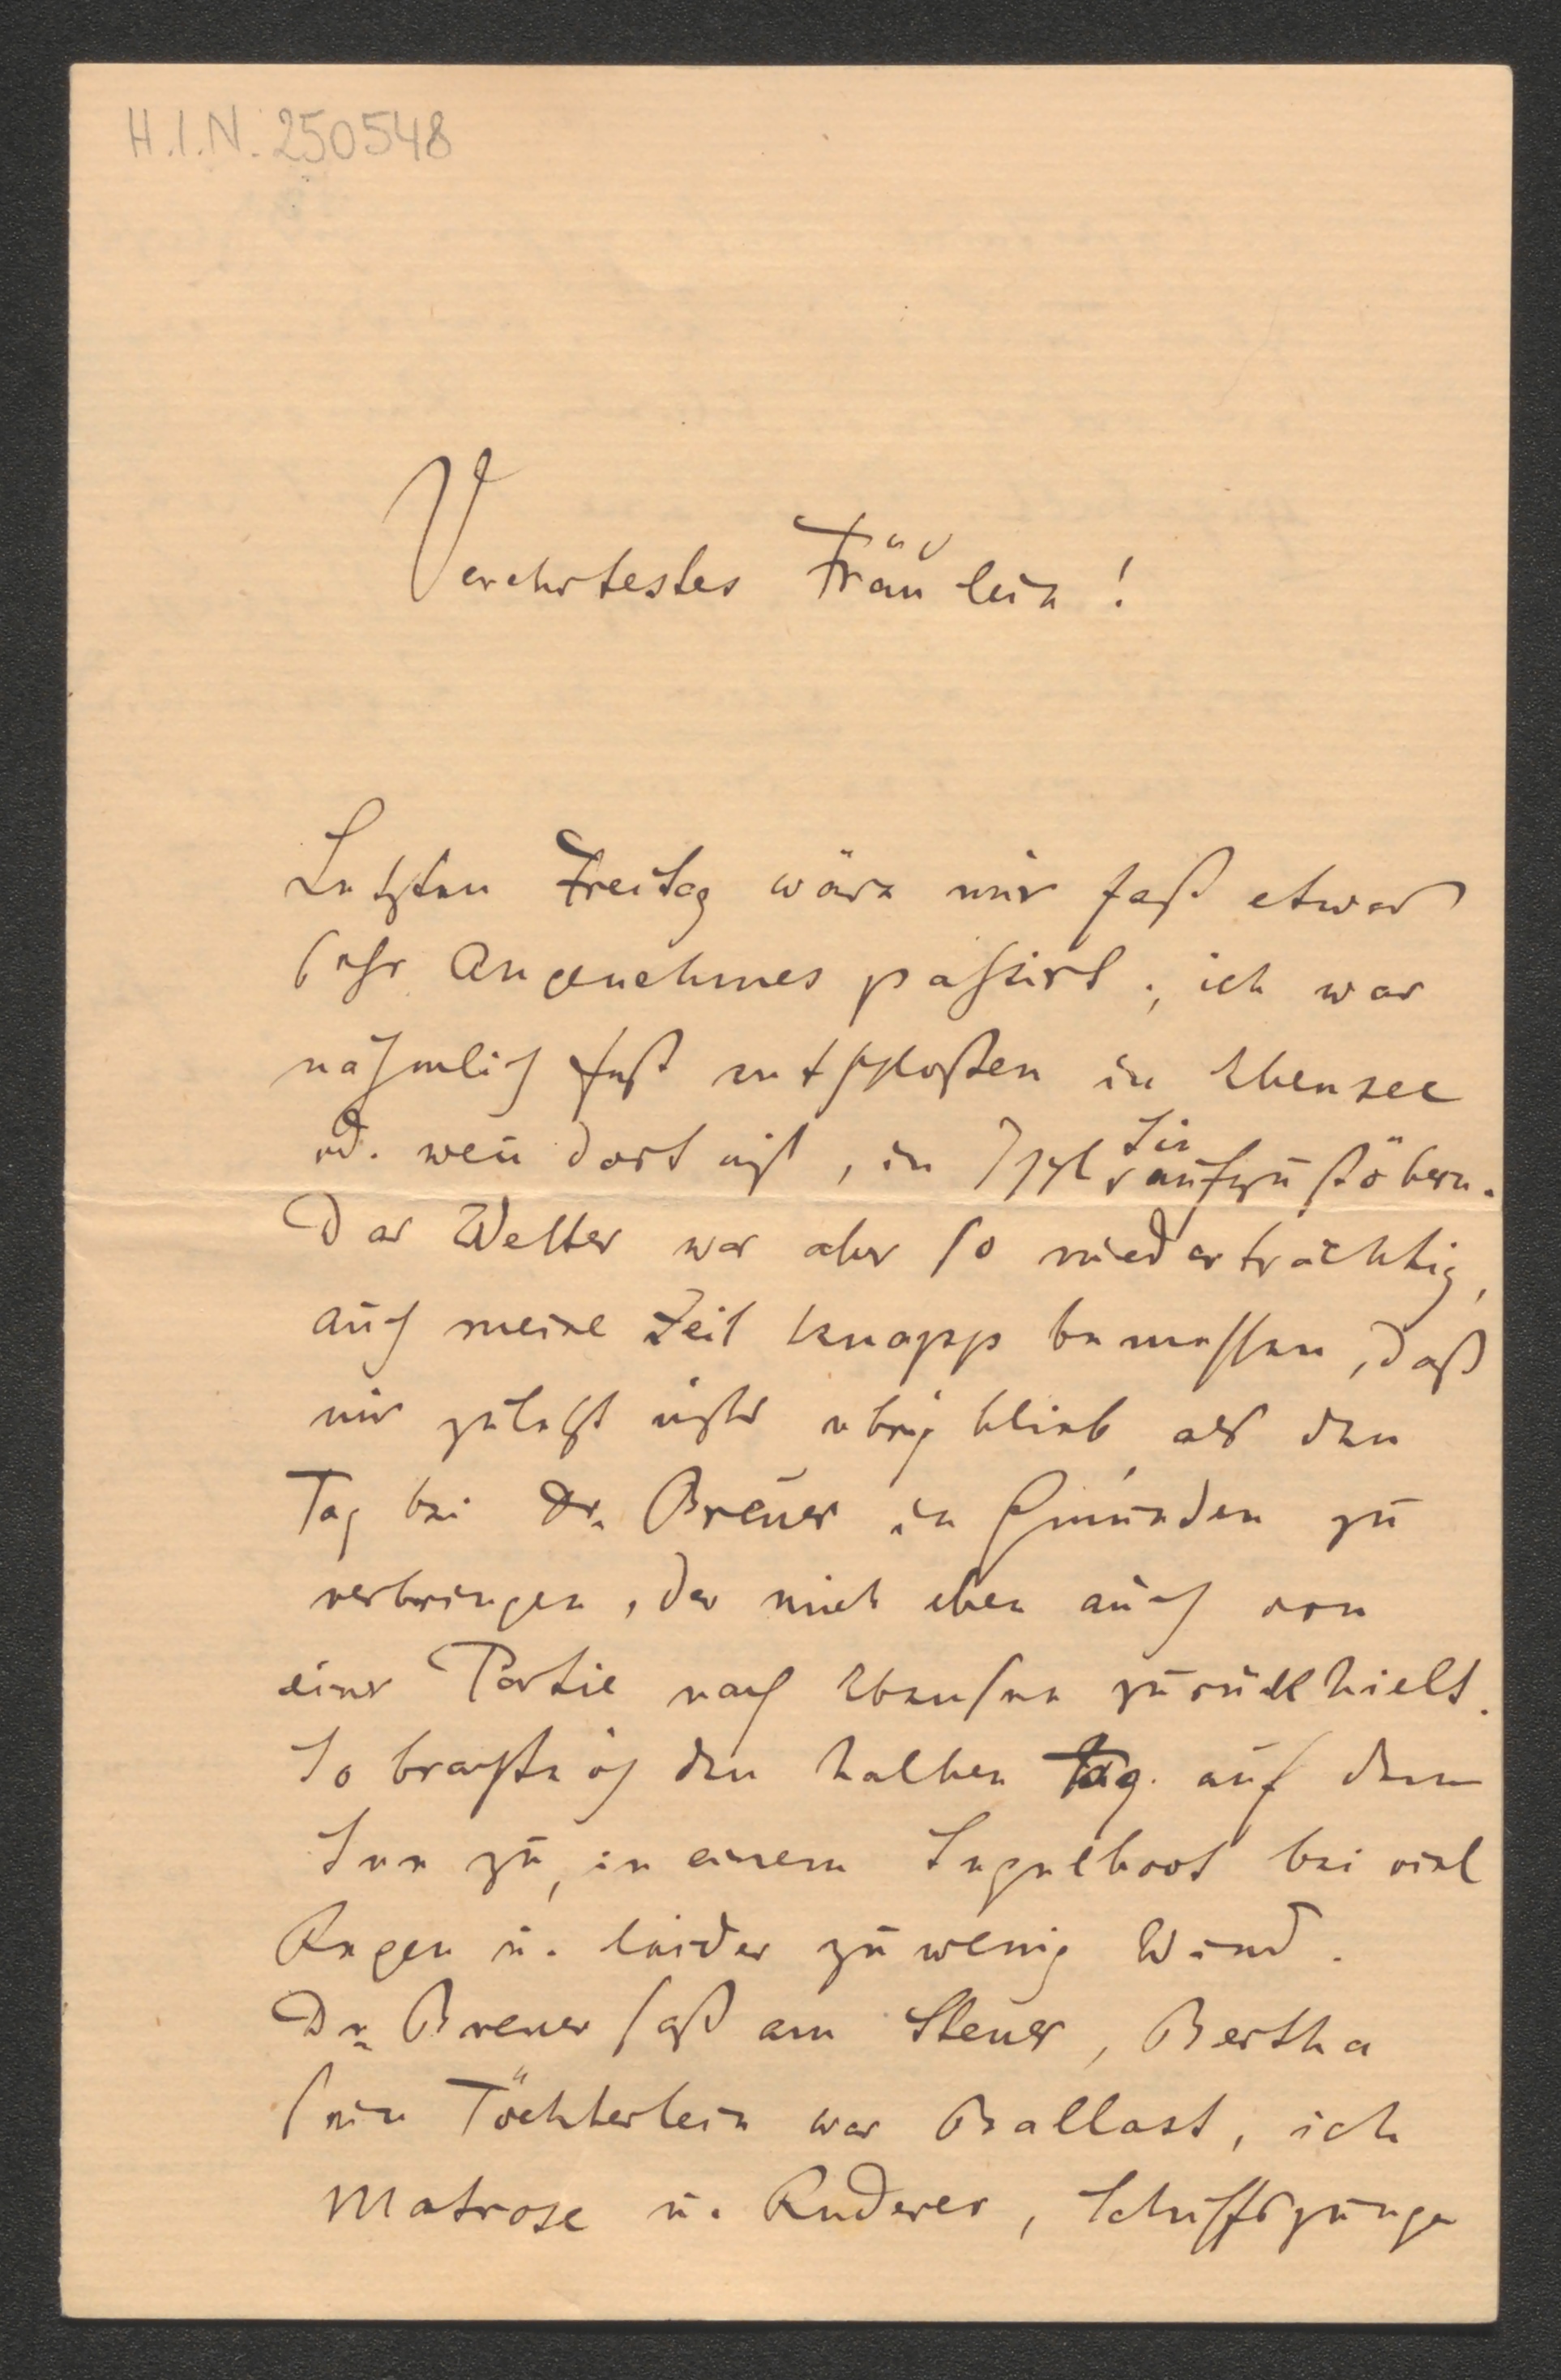 H.I.N. 250548
Verehrtestes Fräulein!
Letzten Freitag wäre mir fast etwas
sehr Angenehmes passirt; ich war
nähmlich fest entschloßen in Ebensee
od. weñ dort nicht, in Ischl Sie aufzustöbern.
Das Wetter war aber so niederträchtig,
auch meine Zeit knapp bemessen, daß
mir zuletzt nichts übrig blieb als den
Tag bei Dr. Breuer in Gmunden zu
verbringen, der mich eben auch von
einer Partie nach Ebensee zurückhielt.
So brachte ich den halben Tag auf dem
See zu, in einem Segelboot bei viel
Regen u. leider zu wenig Wind.
Dr. Breuer saß am Steuer, Bertha
sein Töchterlein war Ballast, ich
Matrose u. Ruderer, Schiffsjunge